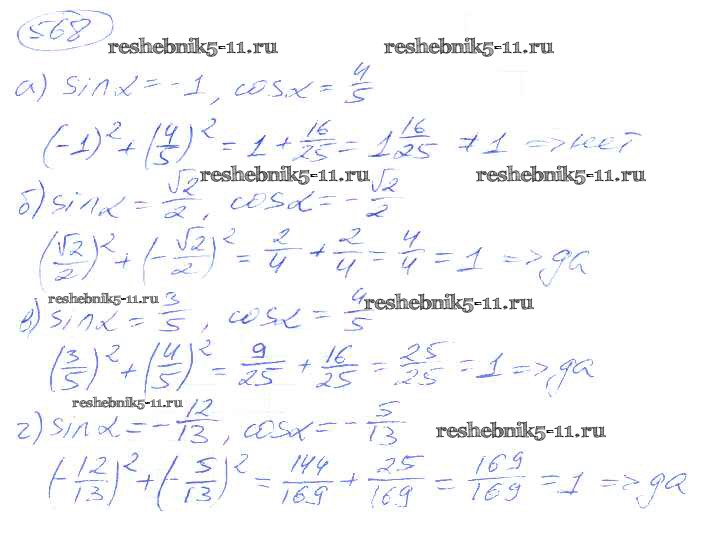 568
reshebnik5-11.ru reshebnik5-11.ru
а) sinα = -1, cosα = 4/5
(-1)² + (4/5)² = 1 + 16/25 = 1 16/25 ≠ 1 => нет
reshebnik5-11.ru reshebnik5-11.ru
б) sinα = √2/2, cosα = -√2/2
(√2/2)² + (-√2/2)² = 2/4 + 2/4 = 4/4 = 1 => да
reshebnik5-11.ru reshebnik5-11.ru
в) sinα = 3/5, cosα = 4/5
(3/5)² + (4/5)² = 9/25 + 16/25 = 25/25 = 1 => да
reshebnik5-11.ru
г) sinα = -12/13, cosα = -5/13
reshebnik5-11.ru
(-12/13)² + (-5/13)² = 144/169 + 25/169 = 169/169 = 1 => да